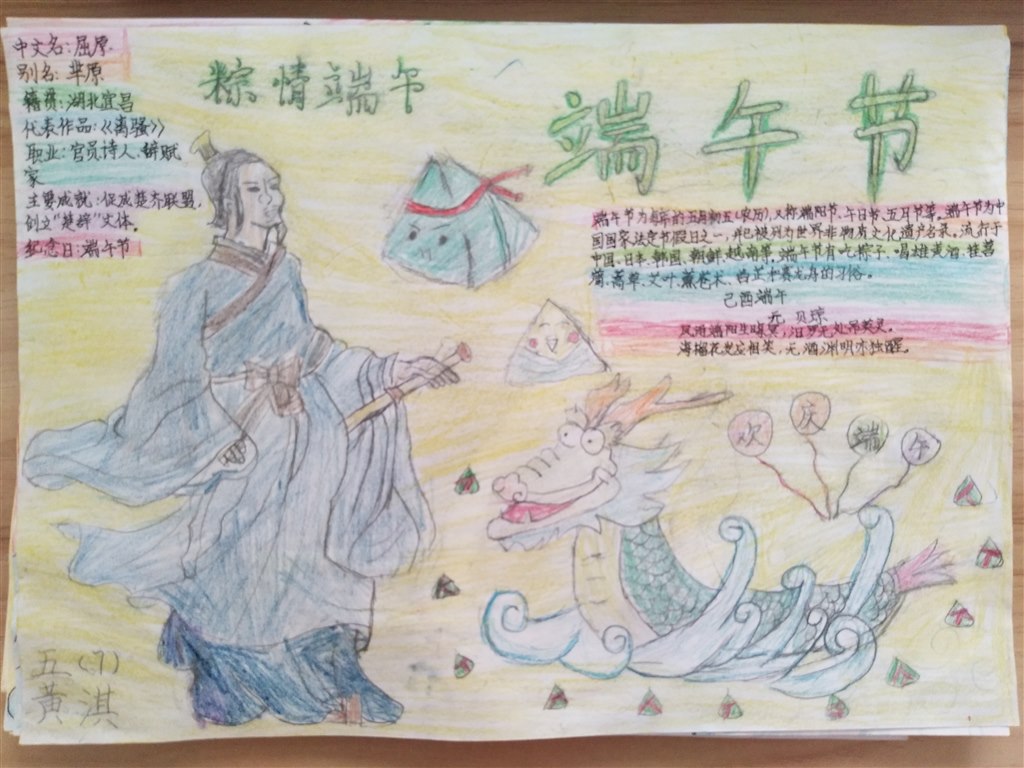 中文名:屈原
别名:芈原
籍贯:湖北宜昌
代表作品:《离骚》
职业:官员诗人、辞赋
家
主要成就:促成楚齐联盟,
创立“楚辞”文体。
纪念日:端午节
粽情端午
端午节
端午节为每年的五月初五(农历),又称端阳节、午日节、五月节等。端午节为中
国国家法定节假日之一,并已被列为世界非物质文化遗产名录。流行于
中国、日本、韩国、朝鲜、越南等。端午节有吃粽子、喝雄黄酒、挂菖
蒲、蒿草、艾叶、薰苍术、白芷、赛龙舟的习俗。
己酉端午
元 贝琼
风雨端阳生晦冥,汨罗无处吊英灵。
海榴花发应相笑,无酒渊明亦独醒。
欢庆端午
五(7)
黄淇